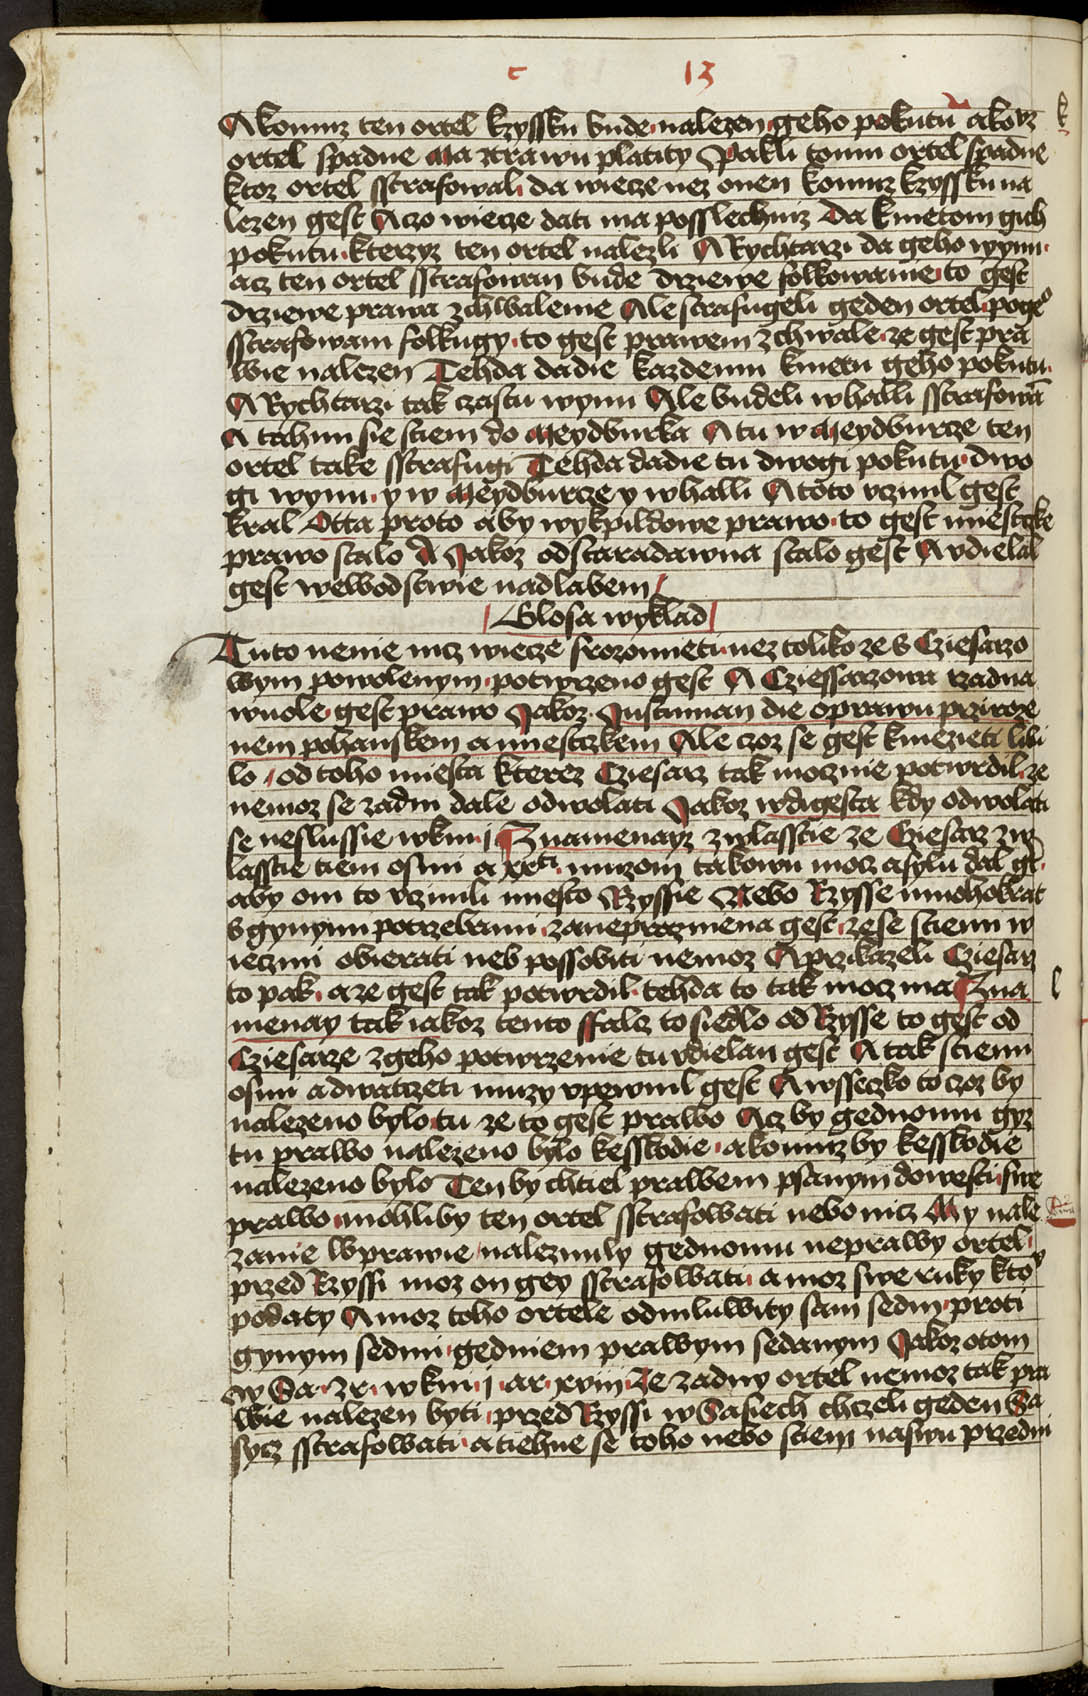 c 13
A komuz ten ortel kzyssku bude nalezen geho pokutu akoz
ortel spadne Ma ztrawu platity Pakli tomu ortel spadne
ktoz ortel sstrafowal da wiecze nez onen komuz kzyssku na
lezen gest Aczo wiecze dati ma posslechniz Da kmetom gich
pokutu kterzyz ten ortel nalezli A Rychtarzi da geho wynu
acz ten ortel sstrafowan bude drziewe folkowanie to gest
drziewe prawa zchwalenie Ale strafugeli geden ortel po geo
sstrafowani folkugy to gest prawem zchwale ze gest pra
wie nalezen Tehda dadie kazdemu kmetu geho pokutu
A Rychtarzi tak czastu wynu Ale budeli w halli sstrafowā
A tahnu sie stiem do Meydburka A tu w Meydburcze ten
ortel take sstrafugi Tehda dadie tu dwogi pokutu dwo
gi wynu y w Meydburcze y w halli A toto vczinil gest
kral Otta proto aby wykpildowe prawo to gest miestcke
prawo stalo Jakoz odstaradawna stalo gest A vdielal
gest wewodstwie nadlabem
Glosa wyklad
Tuto nenie nicz wiecze srozomieti nez toliko ze s Cziesarzo
wym powolenym potwrzeno gest A Cziessarzowa rzadna
wuole gest prawo Jakoz Justinian die oprawu przirozе
nem pohanskem a miestczkem Ale czoz se gest kniezieti libi
lo od toho miesta kterez Cziesarz tak mocznie potwrdil ze
nemoz se zadni dale odwolati Jakoz wdigesta kdy odwolati
se neslussie wkni j Znamenayz zwlasstie ze Cziesarz zw
lasstie tiem osmi a xxti muzom takowu mocz a sylu dal gt
aby oni to vczinili miesto Rzyssie Nebo Rzysse mnohokrat
s gynymi potrzebami zaneprazdniena gest ze se stiemi w
ieczmi obierati neb possobiti nemoz A przikazeli Cziesarz
to pak aze gest tak potwrdil tehda to tak mocz ma Zna
menay tak iakoz tento ssalz to siedlo od Rzysse to gest od
Cziesarze zgeho potwrzenie tu vdielan gest A tak stiemi
osmi a dwatzeti muzy vpewnil gest A wsseczko to czoz by
nalezeno bylo tu ze to gest prawo Acz by gednomu gyz
tu prawo nalezeno bylo kesskodie akomuz by kesskodie
nalezeno bylo Ten by chtiel prawem psanym dowesti swe
prawo mohliby ten ortel sstrafowati nebo nicz My nale
zame w prawie nalezniuly gednomu neprawy ortel
przed Rzyssi moz on gey sstrafowati a moz swe ruky kto
podaty A moz toho ortele odmluwity sam sedm proti
gynym sedmi gedniem prawym sedanym Jakoz otom
w Sa zr wkni j ar xviij Ze zadny ortel nemoz tak pra
wie nalezen byti przed Rzyssi w Sasiech chczeli geden Sa
sycz sstrafowati a tiehne se toho nebo stiem naswu przedni